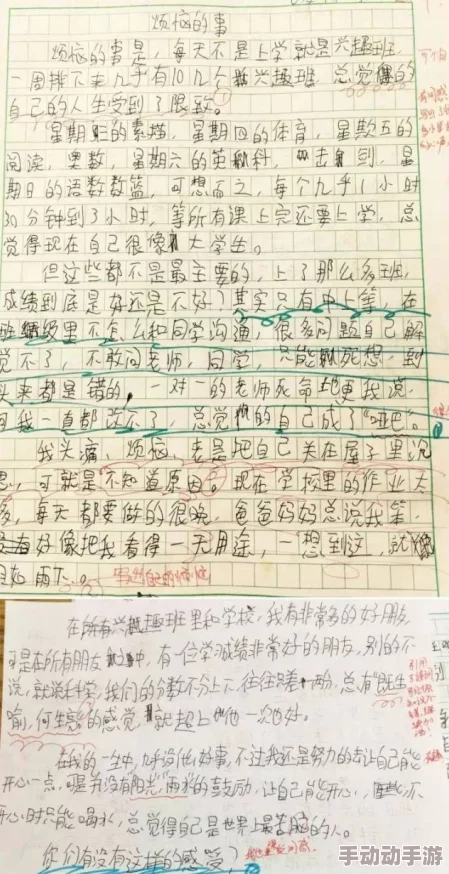 烦恼的事
烦恼的事是，每天不是上学就是兴趣班，
一周排下来几乎有10几个兴趣班 总觉得的
自己的人生受到了限致。
星期三的素描，星期四的体育，星期五的
阅读，奥数，星期六的英 科， 击 到，星
期日的语数数篮，可想而之，每个几乎1小时
30分钟到3小时，等所有课上完还要上学，总
觉得现在自己很像 大学生。
但这些都不是最主要的，上了那么多班，
成绩到底是好还是不好？其实只有中上等，在
班级里不怎么和同学沟通，很多问题自己解
觉不了，不敢问老师，同学，只能 死想，到
头来都是错的，一对一的老师死命地更我说，
可我一直都改不了，总觉 的自己成了“哑巴”。
我头痛，烦恼，老是把自己关在屋子里沉
思，可就是不知道原因。现在学校里的作业太
多，每天都要做的很晚，爸爸妈妈总说我笨，
好像把我看得一无用途，一想到这，就
如雨下。
写出自己的烦恼
在所有兴趣班里和学校，我有非常多的好朋友，
可是在所有朋友 中，有一位学习成绩非常好的朋友，别的不
说，就说科学，我们的分数不分上下，往往只差一两分，总有“既生
瑜，何生亮”的感觉 就超上他一次也好。
在我的一生中，几乎没什么好事，不过我还是努力的去让自己能
开心一点，可是并没有阳光，雨水的鼓励，让自己能开心， 不
开心时只能喝水，总觉得自己是世界上最苦脑的人。
你们有没有这样的感受？
手动动手游